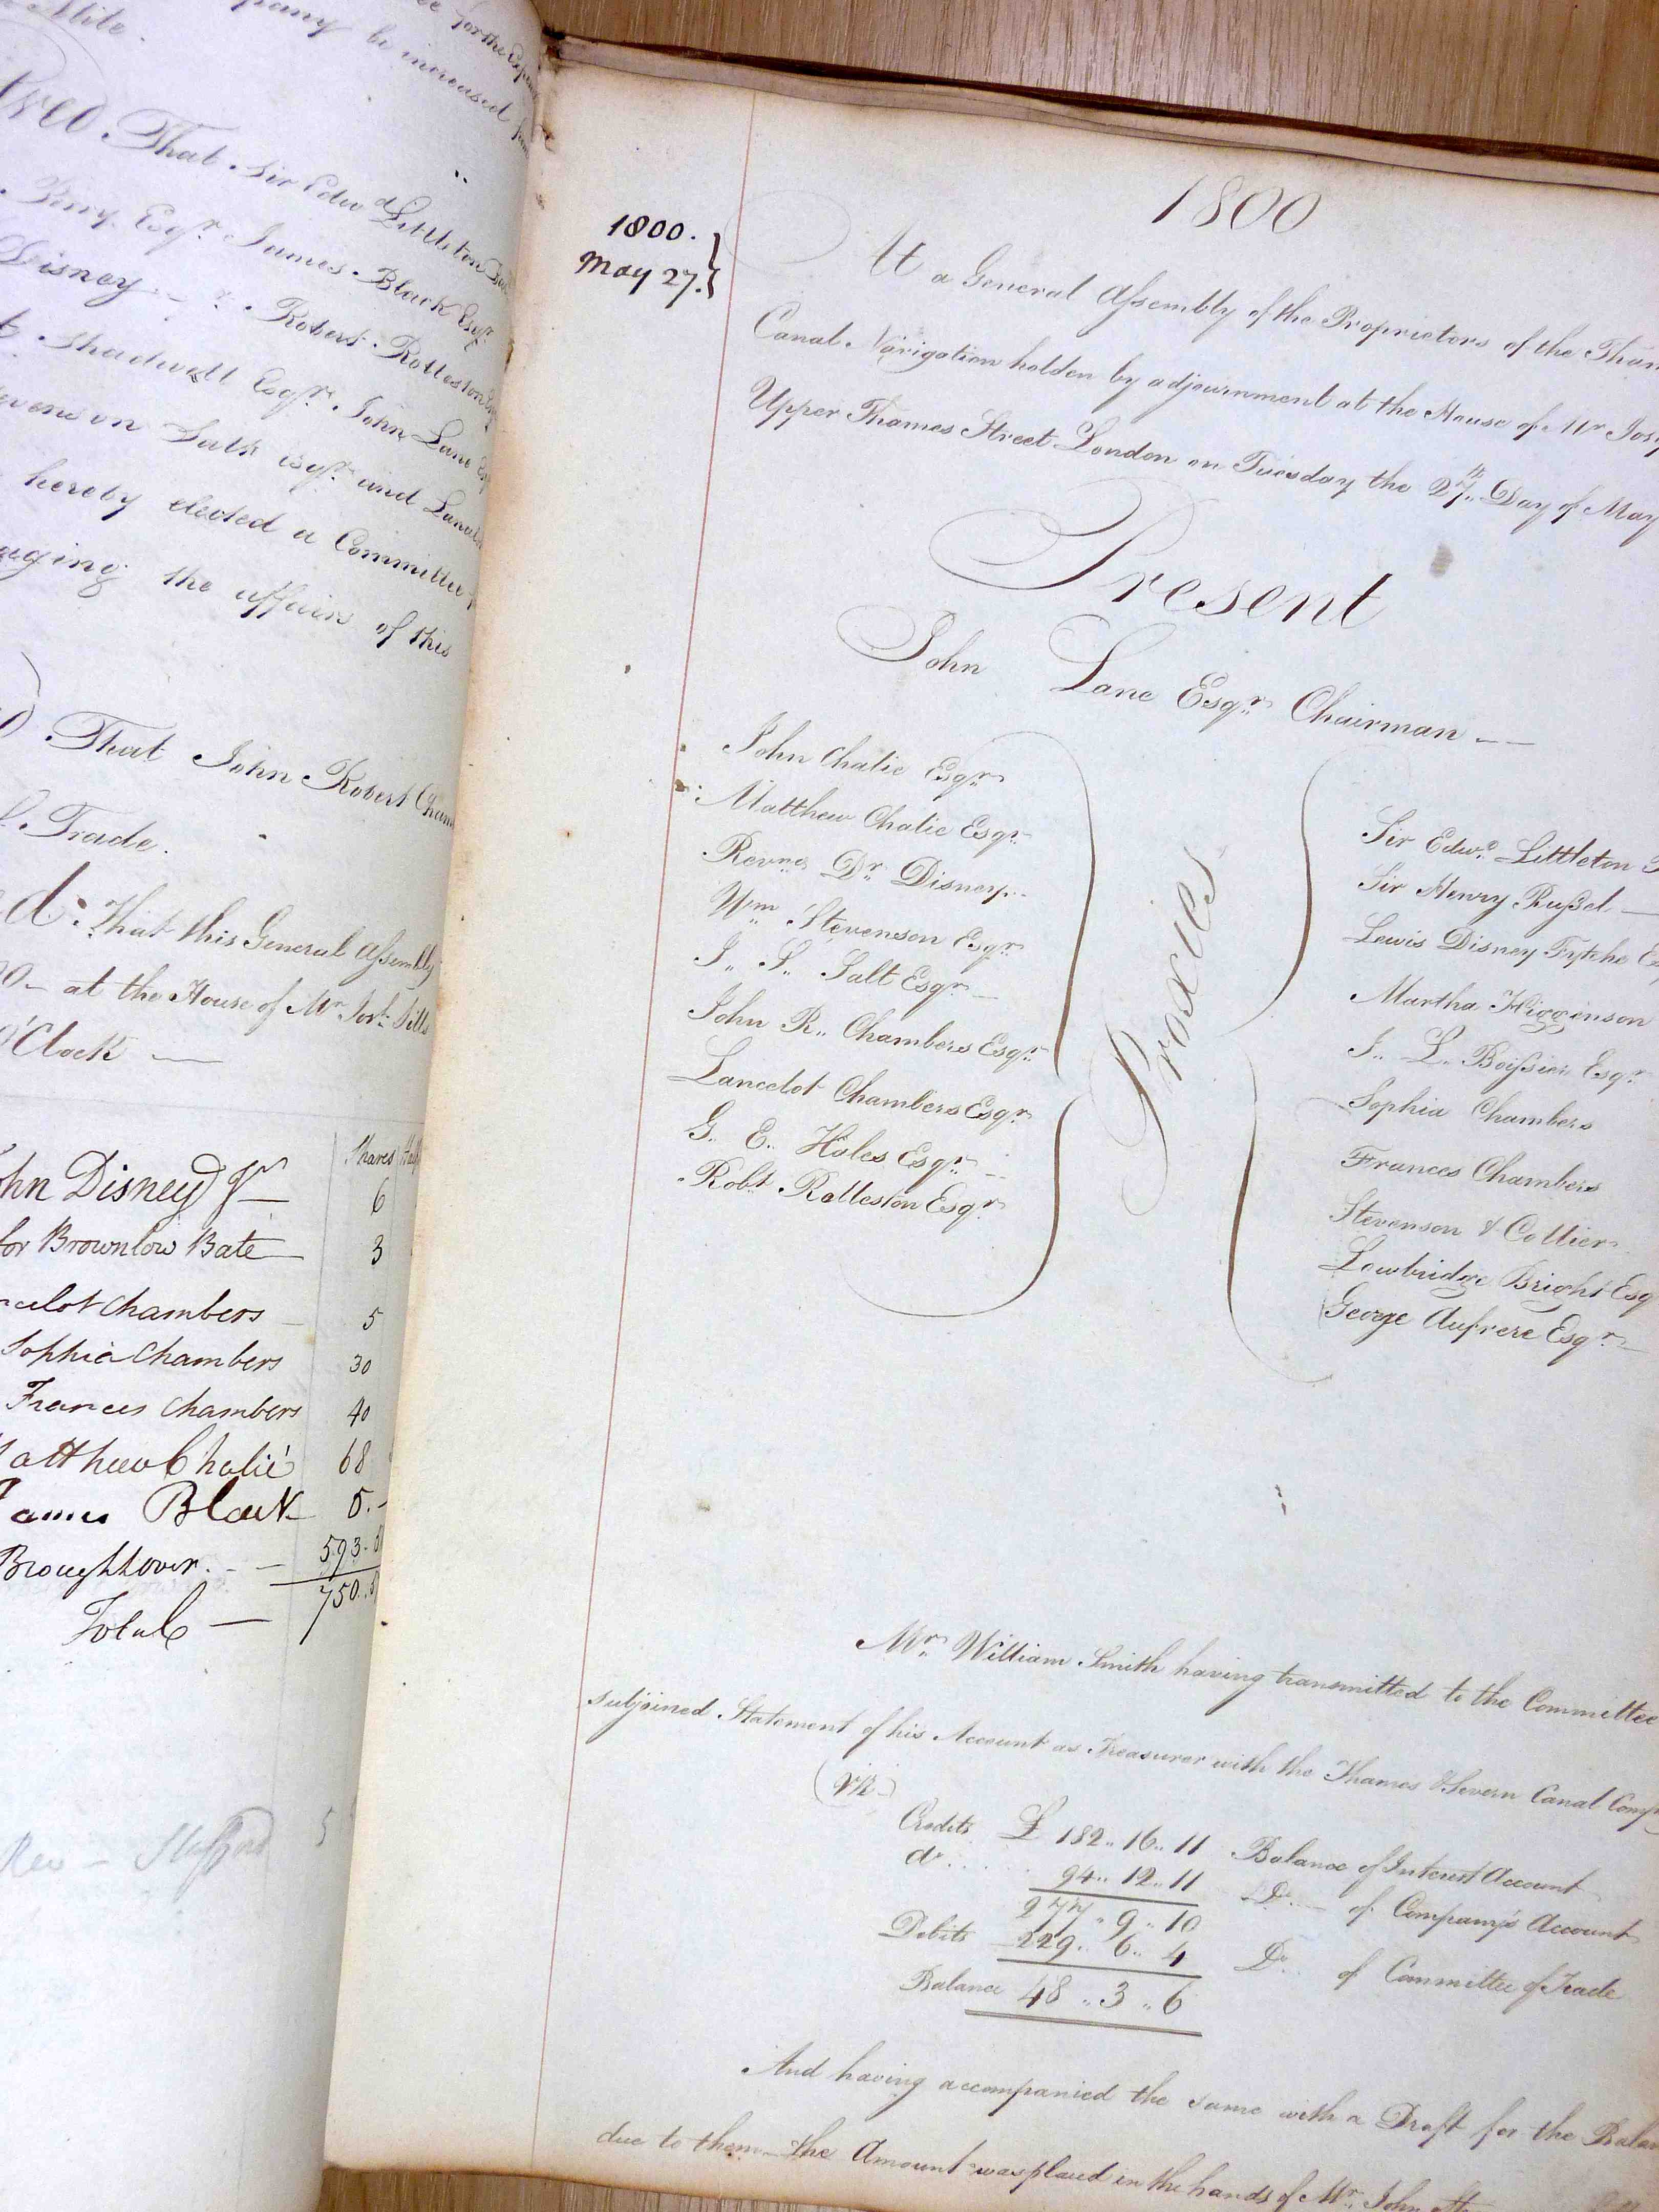 Mile.
pany be increased from
That Sir Edwd Littleton
Perry Esqr. James Black Esqr
Disney Robert Rolleston Esqr
Shadwell Esqr. John Lane Esq
Salt esqr. and
hereby elected a Committee
aging the affairs of this
That John Robert Cham
Trade.
d. That this General Assembly
at the House of Mr. Josh. Sills
O'Clock —
Shares
ohn Disney Jr — 6
for Brownlow Bate — 3
ncelot Chambers — 5
Sophia Chambers 30
Frances Chambers 40
Matthew Chalié 68
James Black 5.-
Broughtover. - - 593.
Total — 750.
Rev - 5
1800
1800.
May 27.
At a General Assembly of the Proprietors of the Tham
Canal Navigation holden by adjournment at the House of Mr Jos
Upper Thames Street London on Tuesday the 27th Day of May
Present
John Lane Esqr. Chairman —
John Chalie Esqr.
Matthew Chalie Esqr.
Revnd. Dr. Disney
Wm. Stevenson Esqr.
J.. S.. Salt Esqr. —
John R.. Chambers Esqr.
Lancelot Chambers Esqr.
G.. E.. Holes Esqr.
Robt. Rolleston Esqr.
Proxies
Sir Edwd. Littleton B
Sir Henry Rußel —
Lewis Disney Fytche Es
Martha Higginson
J.. L.. Boißier Esqr.
Sophia Chambers
Frances Chambers
Stevenson & Collier
Lowbridge Bright Esq
George Aufrere Esqr. —
Mr. William Smith having transmitted to the Committee
subjoined Statement of his Account as Treasurer with the Thames & Severn Canal Comp
(Viz)
Credits £ 182.. 16.. 11 Balance of Interest Account
do. .. 94.. 12.. 11 Do. — of Company's Account
277 .. 9 .. 10
Debits 229.. 6.. 4 Do. .. of Committee of Trade
Balance 48 .. 3 .. 6
And having accompanied the same with a Draft for the Balan
due to them — the Amount was placed in the hands of Mr. John